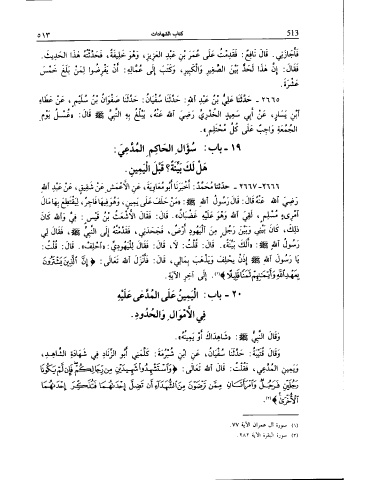 513 كتاب الشهادات ٥١٣
فأجازني. قال نافع: فقدمت على عمر بن عبد العزيز، وهو خليفة، فحدثته هذا الحديث.
فقال: إن هذا لحد بين الصغير والكبير، وكتب إلى عماله: أن يفرضوا لمن بلغ خمس
عشرة.
٢٦٦٥ - حدثنا علي بن عبد الله: حدثنا سفيان: حدثنا صفوان بن سليم، عن عطاء
ابن يسار، عن أبي سعيد الخدري رضي الله عنه، يبلغ به النبي ﷺ قال: «غسل يوم
الجمعة واجب على كل محتلم».
١٩ - باب: سؤال الحاكم المدعي:
هل لك بينة؟ قبل اليمين.
٢٦٦٦-٢٦٦٧ - حدثنا محمد: أخبرنا أبو معاوية، عن الأعمش عن شقيق، عن عبد الله
رضي الله عنه قال: قال رسول الله ﷺ: «من حلف على يمين، وهو فيها فاجر، ليقتطع بها مال
امرىء مسلم، لقي الله وهو عليه غضبان». قال: فقال الأشعث بن قيس: في والله كان
ذلك، كان بيني وبين رجل من اليهود أرض، فجحدني، فقدمته إلى النبي ﷺ، فقال لي
رسول الله ﷺ: «ألك بينة». قال: قلت: لا، قال: فقال لليهودي: «احلف». قال: قلت:
يا رسول الله إذن يحلف ويذهب بمالي، قال: فأنزل الله تعالى: ﴿إن الذين يشترون
بعهد الله وأيمانهم ثمنا قليلا﴾(١). إلى آخر الآية.
٢٠ - باب: اليمين على المدعى عليه
في الأموال والحدود.
وقال النبي ﷺ: «شاهداك أو يمينه».
وقال قتيبة: حدثنا سفيان، عن ابن شبرمة: كلمني أبو الزناد في شهادة الشاهد،
ويمين المدعي، فقلت: قال الله تعالى: ﴿واستشهدوا شهيدين من رجالكم فإن لم يكونا
رجلين فرجل وامرأتان ممن ترضون من الشهداء أن تضل إحداهما فتذكر إحداهما
الأخرى﴾(٢).
(١) سورة آل عمران الآية ٧٧.
(٢) سورة البقرة الآية ٢٨٢.